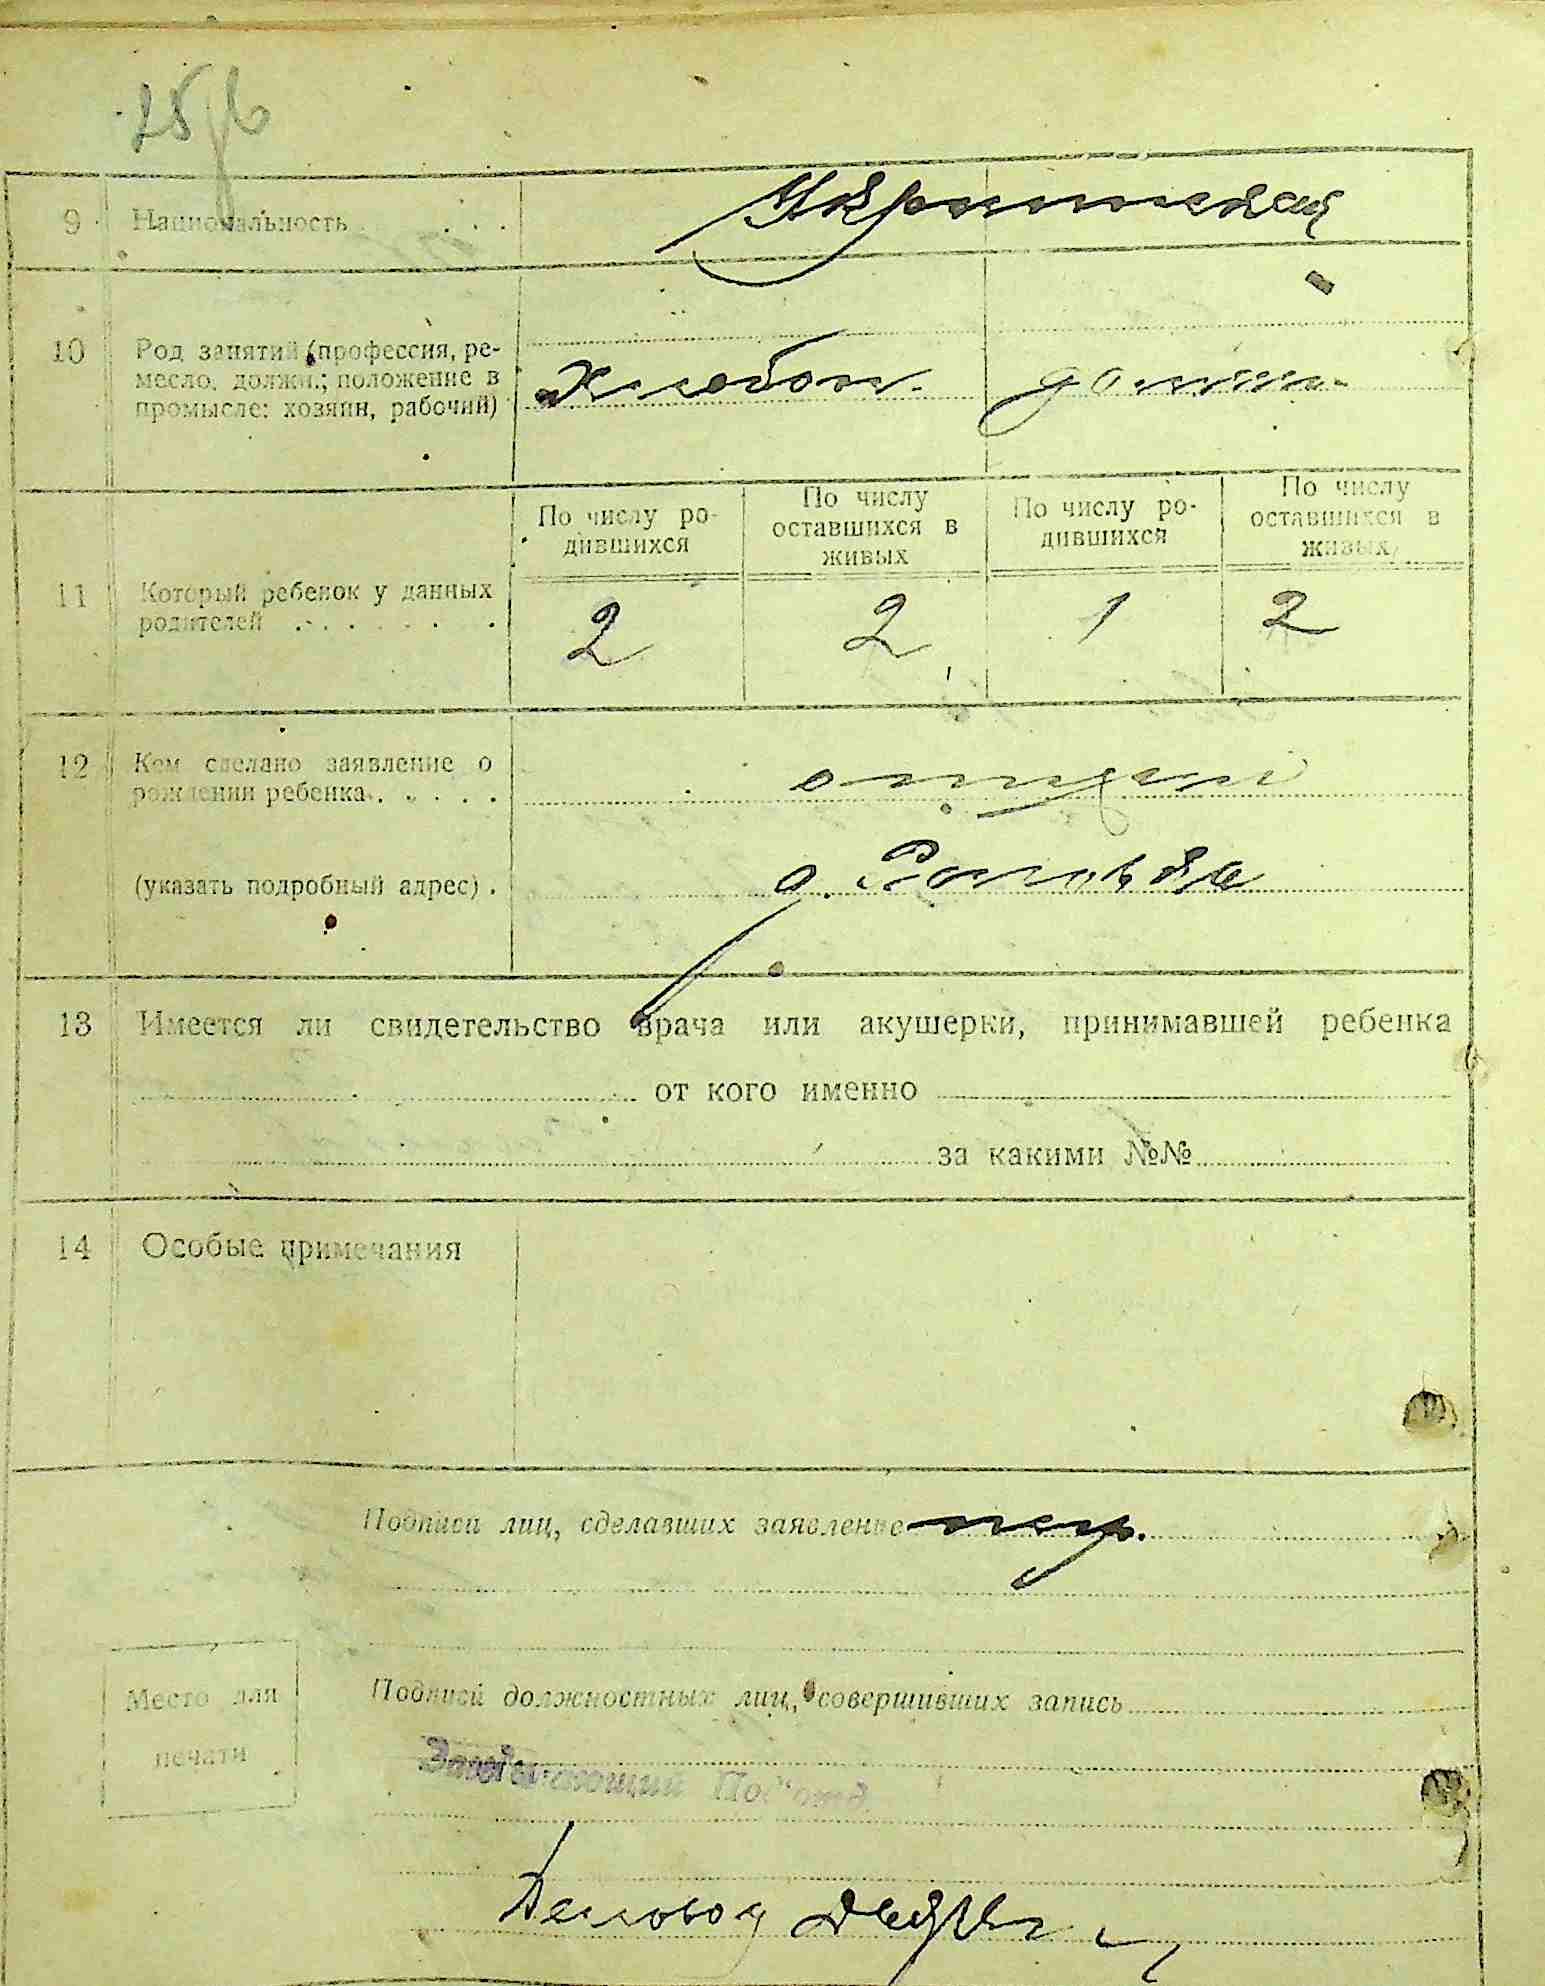 9 Национальность . . . Украинской
10 Род занятий (профессия, ре-
месло, должн.; положение в
промысле: хозяин, рабочий) Хлебоп. домаш.
По числу ро-
дившихся
По числу
оставшихся в
живых
По числу ро-
дившихся
По числу
оставшихся в
живых
11 Который ребенок у данных
родителей . . . . . .
2 2 1 2
12 Кем сделано заявление о
рождении ребенка . . . . . отцем
(указать подробный адрес) .
13 Имеется ли свидетельство врача или акушерки, принимавшей ребенка
от кого именно
за какими №№
14 Особые примечания
Подписи лиц, сделавших заявление
Место для
печати
Подписи должностных лиц, совершивших запись
Заведывающий Под'отд.
Деловод